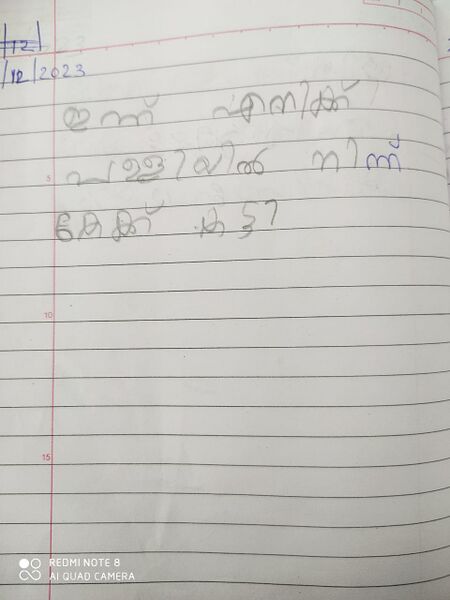 12|
/12/2023
ഇന്ന് എനിക്ക്
5
പള്ളിയിൽ നിന്ന്
കേക്ക് കട്ടി
10
15
REDMI NOTE 8
AI QUAD CAMERA